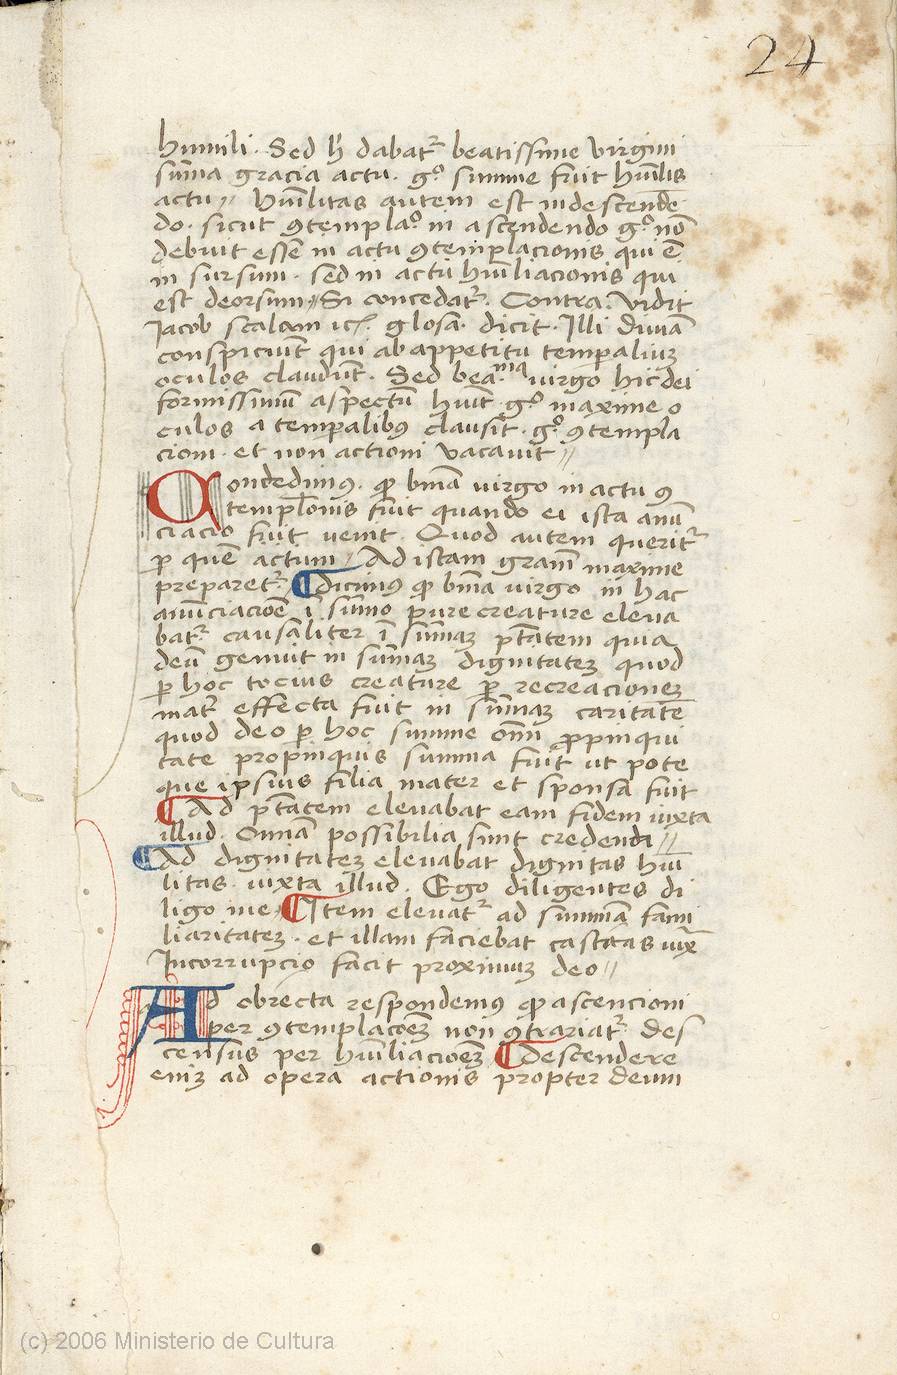 24
humili. Sed hͥ dabat᷑ beatissime virgini
sum̄a gracia actu. gͦ summe fuit hum̄ilis
actu // hum̄ilitas autem est in descende
do. sicut ꝯtemplaͦ. in ascendendo gͦ nō
debuit esse in actu ꝯtemplacionis qui ē
in sursum. sed in actu hum̄iliacionis qui
est deorsum // Si concedat᷑. Contra. vidit
Jacob scalam ꝛc̄. glosa. dicit. Illi diuinā
conspiciūt qui ab appetitu temꝑaliuꝫ
oculos claudūt. Sed bea.ᵐᵃ virgo hic dei
formissimū aspectū huīt. gͦ maxime o
culos a temꝑalibꝰ clausit. gͦ ꝯtempla
cioni. et non actioni vacauit //
Condedimꝰ. ꝙ btm̄a virgo in actu ꝯ
templōnis fuit quando ei ista anū
ciacio fuit uenit. Quod autem querit᷑
ꝑ quē actum / Ad istam gram̄ maxime
preparet᷑. Dicimꝰ ꝙ btm̄a virgo in hac
anūciacioē ī sum̄o pure creature eleua
bat᷑ causaliter ī sum̄aꝫ ptātem quia
deū genuit in sum̄aꝫ dignitateꝫ quod
ꝑ hoc tocius creature ꝑ recreacioneꝫ
mat᷑ effecta fuit in sum̄aꝫ caritatē
quod deo ꝑ hoc summe om̄i ꝓpinqui
tate propinquis summa fuit ut pote
que ipsius filia mater et sponsa fuit
Ad ptātem eleuabat eam fidem iuxta
illud. Omniā possibilia sunt credenti //
Ad dignitateꝫ eleuabat dignitas hūi
litas. iuxta illud. Ego diligentes di
ligo me / Item eleuat᷑ ad summā fami
liaritateꝫ. et illam faciebat castitas iux̄
Incorrupcio facit proximuꝫ deo //
Ad obiecta respondemꝰ ꝙ ascencioni
per ꝯtemplacōeꝫ non ꝯtrariat᷑ des
census per hum̄iliacioēꝫ Descendere
eniꝫ ad opera actionis propter deum
(c) 2006 Ministerio de Cultura